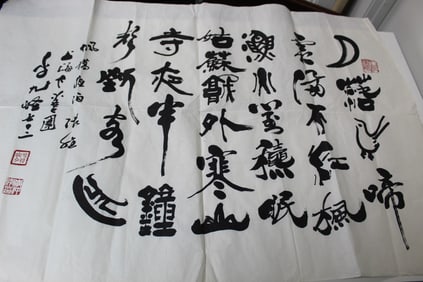 月落烏啼
霜滿天江楓
漁火對愁眠
姑蘇城外寒山
寺夜半鐘
聲到客船
楓橋夜泊 張繼
上海